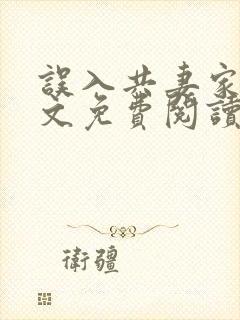 誤入共妻家
文免費閱讀
衛疆